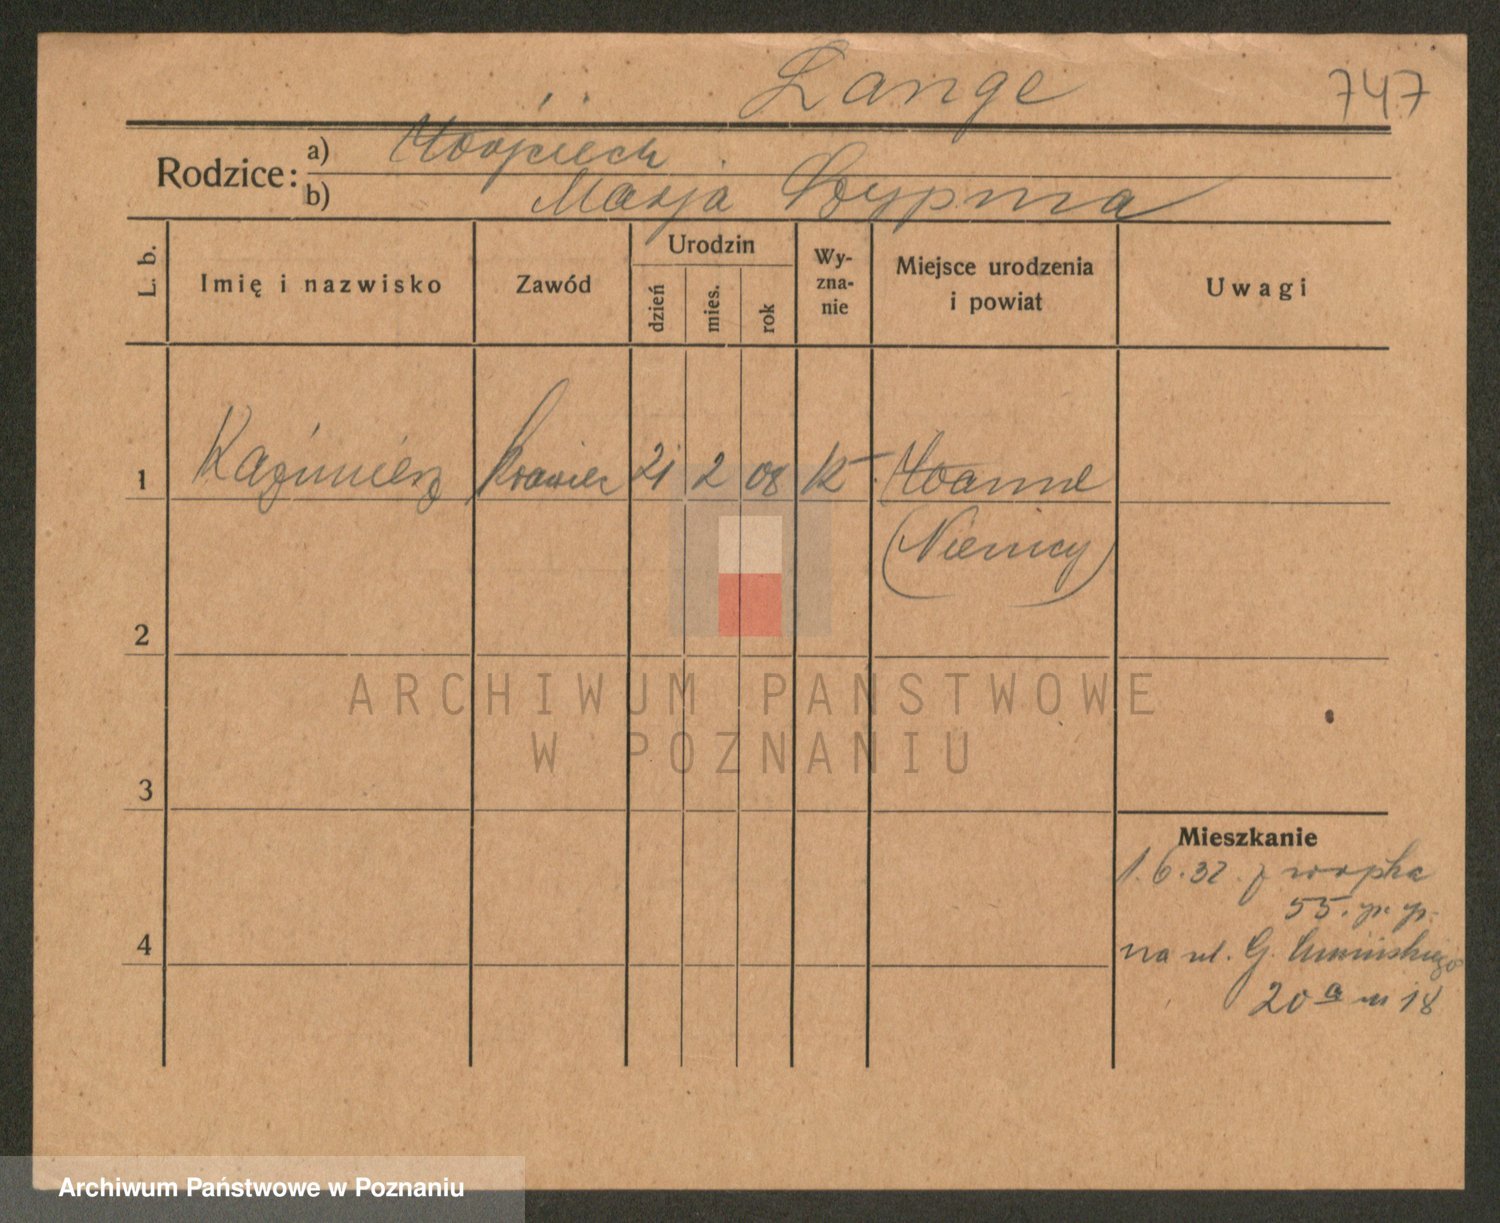 Lange 747
Rodzice: a) Wojciech
b) Marja
L. b. Imię i nazwisko Zawód Urodzin dzień mies. rok Wy-zna-nie Miejsce urodzenia i powiat Uwagi
1 Kaźimierz krawiec 21 2 08 k Wanne
(Niemcy)
2
ARCHIWUM PAŃSTWOWE
W POZNANIU
3
Mieszkanie
1.6.32. z
55.
4 na ul. G. Umińskiego
20a m 18
Archiwum Państwowe w Poznaniu